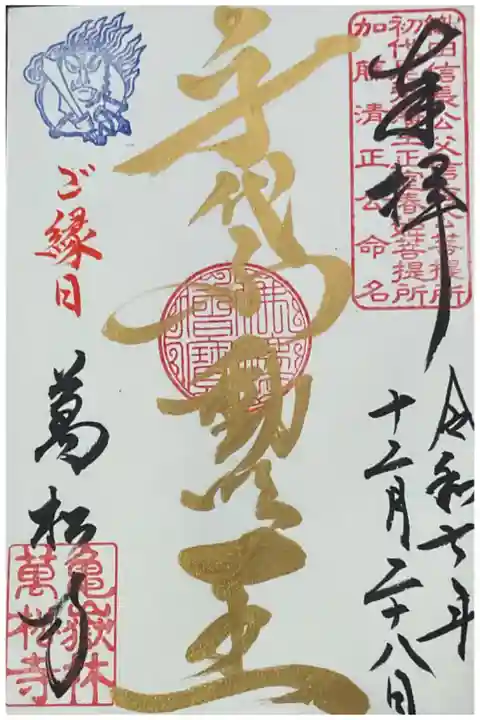 織田信長公父信秀公菩提所
初代尾張藩主正室春姫菩提所
加藤清正公命名
奉拝
令和七年
十二月二十八日
身代不動明王
ご縁日
萬松寺
亀嶽林
萬松寺